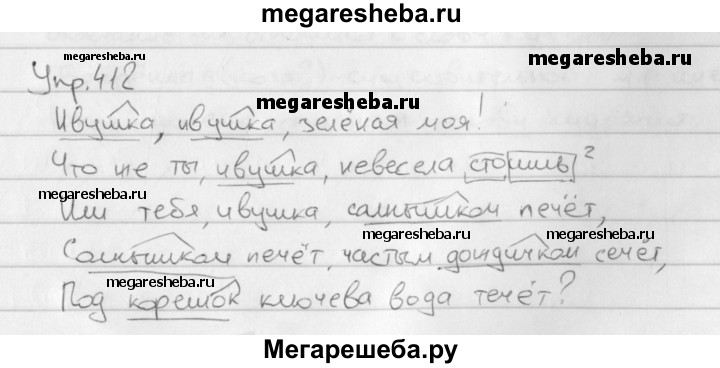 megaresheba.ru
megaresheba.ru
Упр. 412
megaresheba.ru
megaresheba.ru
Ивушка, ивушка, зелёная моя!
Что же ты, ивушка, невесела стоишь²
megaresheba.ru
Или тебя, ивушка, солнышком печёт,
megaresheba.ru megaresheba.ru
Солнышком печёт, частым дождичком сечёт,
Под корешок ключева вода течёт?
Мегарешеба.ру